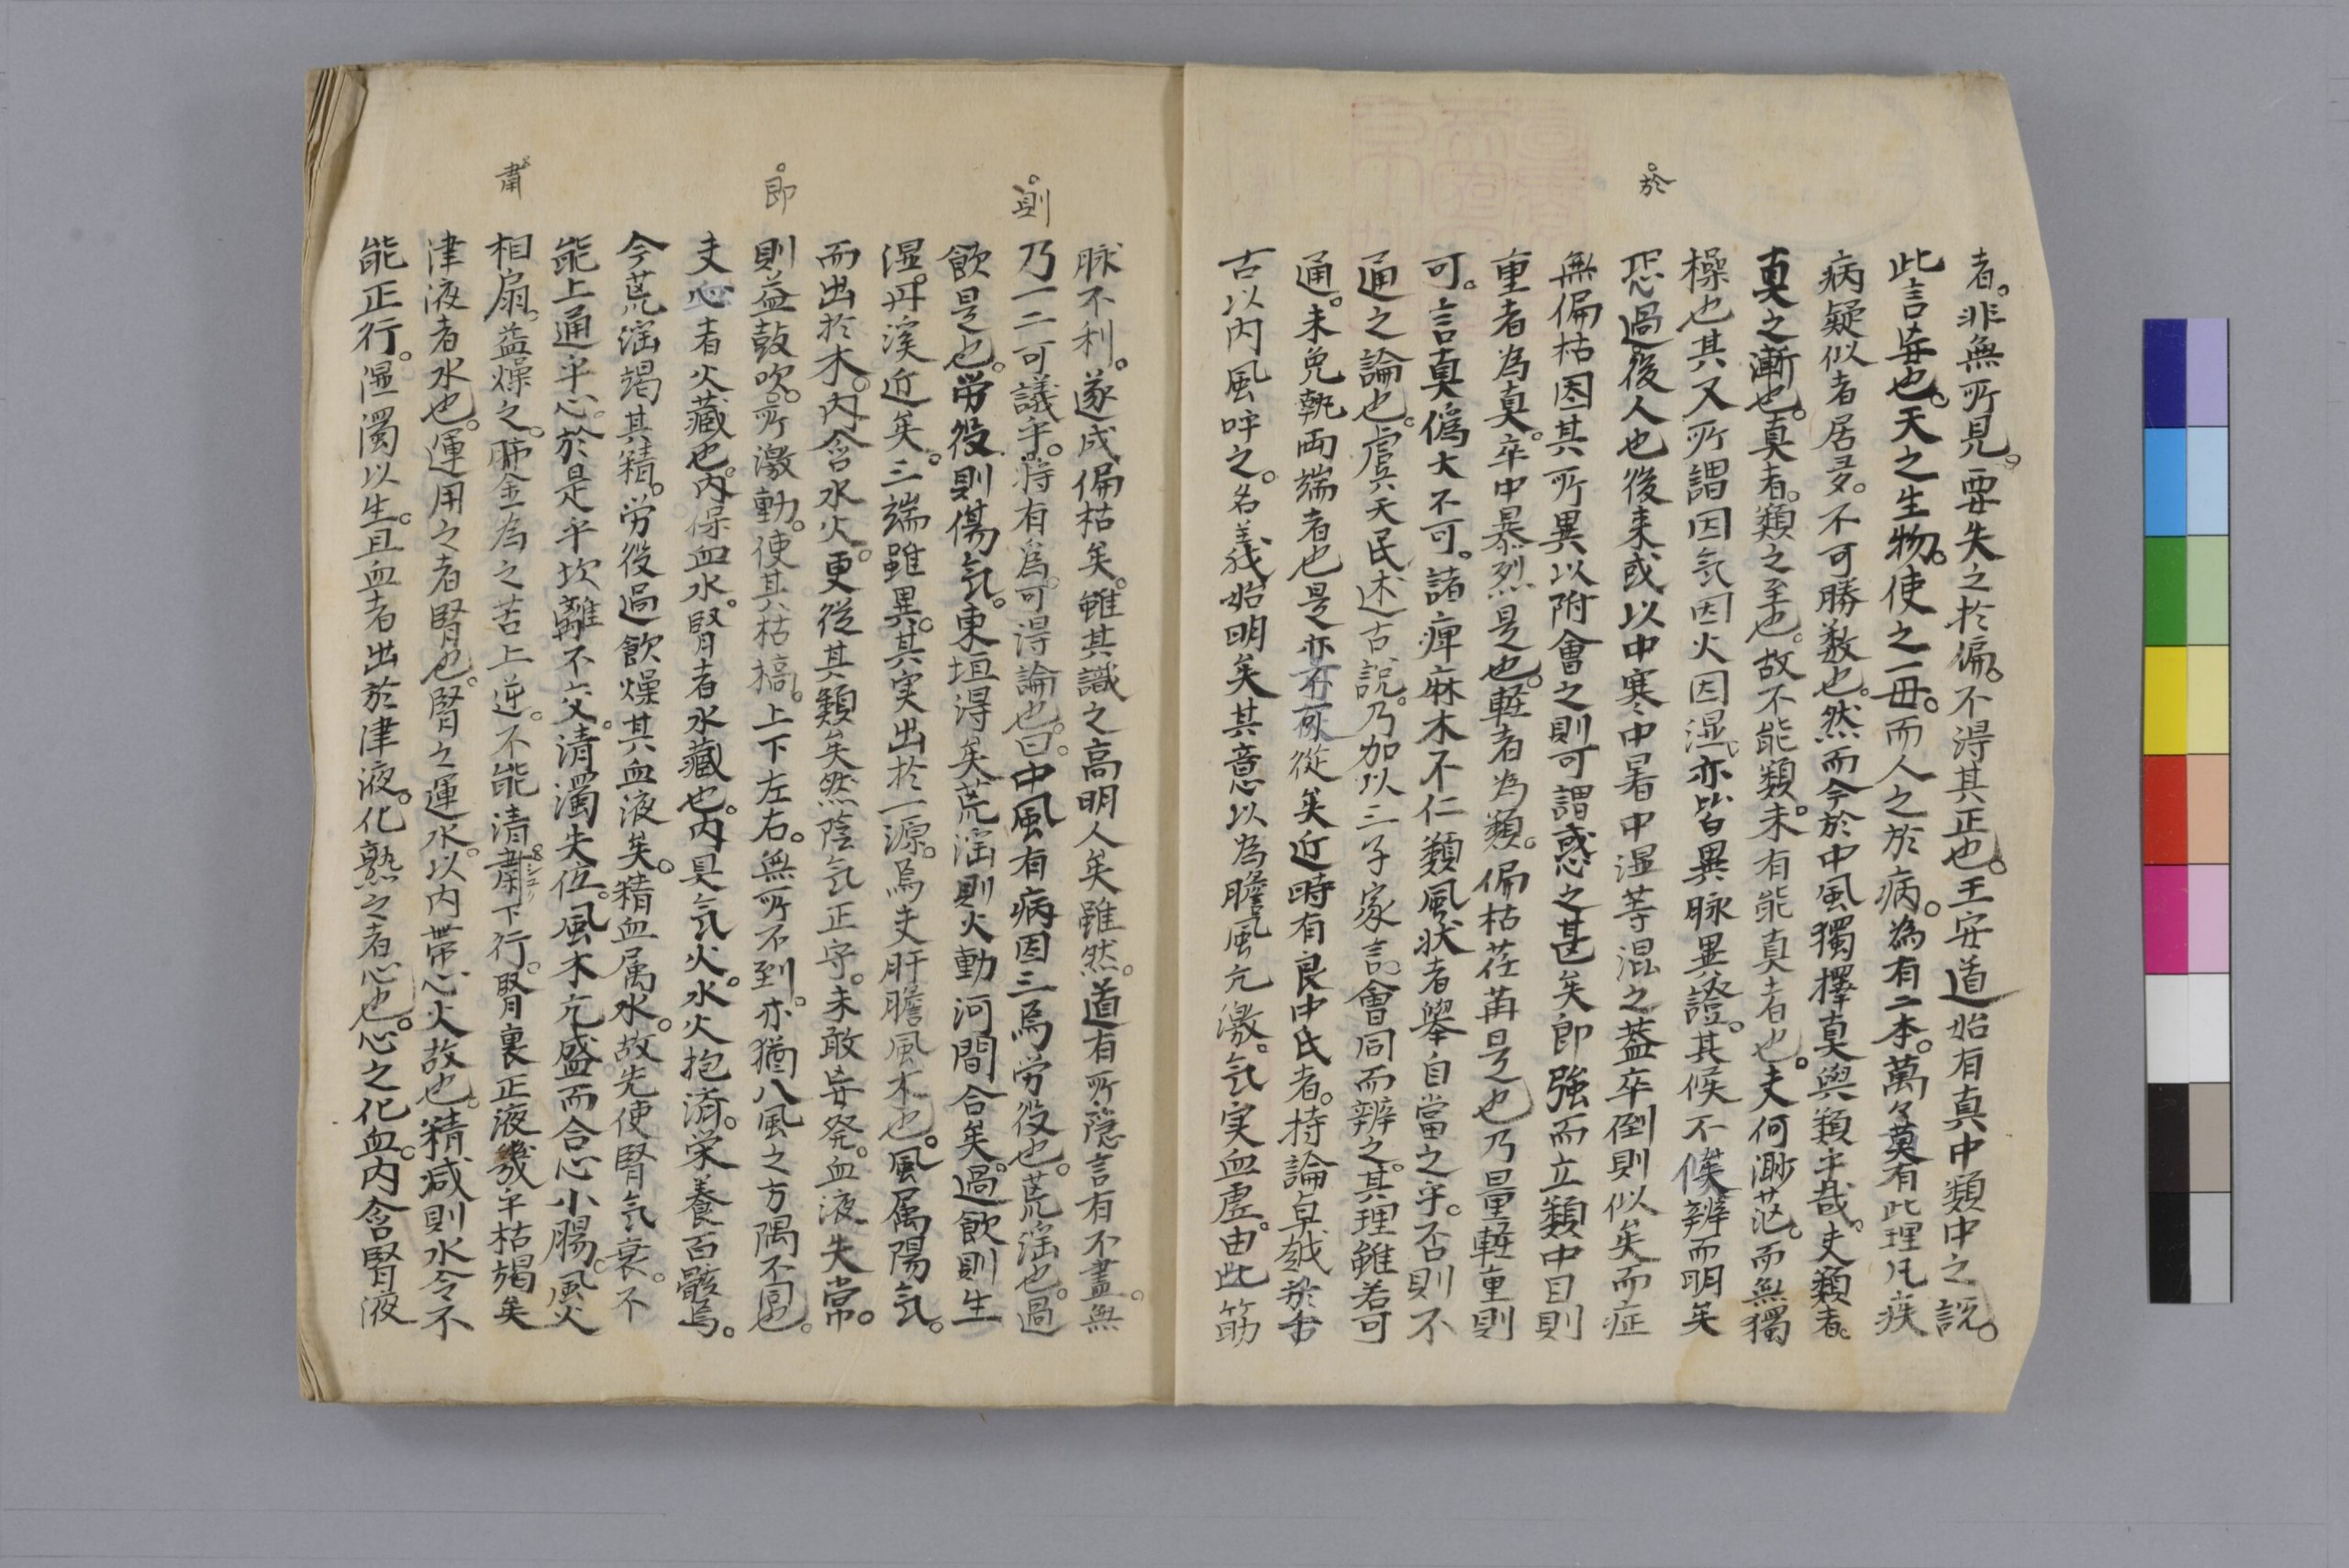 於
者。非無所見。要失之於偏。不得其正也。王安道始有真中類中之説。
此言妄也。天之生物。使之一毋。而人之於病。為有二本。萬々莫有此理凡疾
病疑似者居多。不可勝数也。然而今於中風獨擇真與類乎哉。夫類者。
真之漸也。真者。類之至也。故不能類。未有能真者也。夫何渺茫。而無獨
操也其又所謂因氣因火因湿。亦皆異脉異證。其候不俟辨而明矣
恐過後人也後来或以中寒中暑中湿等混之蓋卒倒則似矣而症
無偏枯因其所異以附會之則可謂惑之甚矣即強而立類中目則
重者為真。卒中暴烈是也。軽者為類。偏枯荏苒是也乃量軽重則
可。言真偽大不可。諸痺麻木不仁類風状者挙自當之乎。否則不
通之論也。虞天民述古説。乃加以三子家言。會同而辨之。其理雖若可
通。未免執両端者也是亦不可從矣近時有良中氏者。持論卓越於古
古以内風呼之。名義始明矣其意以為膽風亢激。気実血虚。由此筋
則
即
肅
脉不利。遂成偏枯矣。雖其識之高明人矣雖然。道有所隠言有不盡。無
乃一二可議乎。将有為。可得論也。曰。中風有病因三焉労役也。荒淫也。過
飲是也。労役則傷気。東垣得矣荒淫則火動河間合矣。過飲則生
湿。丹溪近矣。三端雖異。其実出於一源。焉夫肝膽風木也。風属陽気。
而出於木。内含水火。更從其類矣然陰気正守。未敢妄発。血液失常。
則益鼓吹。所激動。使其枯槁。上下左右。無所不到。亦猶八風之方隅不同也。
夫心者火藏也。内保血水。腎者水藏也。内具気火。水火抱済。栄養百骸焉。
今荒淫竭其精。労役過飲燥其血液矣。精血属水。故先使腎気衰。不
能上通乎心。於是乎坎離不交。清濁失位。風木亢盛而合心小腸。風火
相扇。益燥之。肺金為之苦上逆。不能清肅下行。腎裏正液幾乎枯竭矣
津液者水也。運用之者腎也。腎之運水。以内帯心火故也。精减則水令不
能正行。湿濁以生。且血者出於津液。化熟之者心也。心之化血。内含腎液